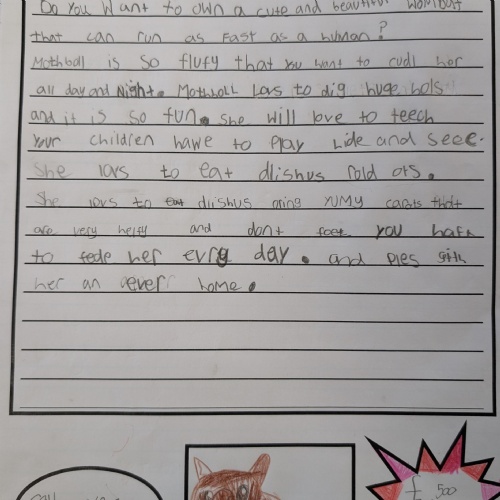 Do you want to own a cute and beautiful wombat
that can run as fast as a human?
Mothball is so flufy that you want to cudl her
all day and Night. Mothball lovs to dig huge hols
and it is so fun. She will love to teech
your children hawe to play hide and seec.
She lovs to eat dlishus rold ots.
She lovs to eat dlishus oring YUMY carots that
are very helfy and dont foget you haft
to fede her evry day. and ples give
her an ever home.
£ 500